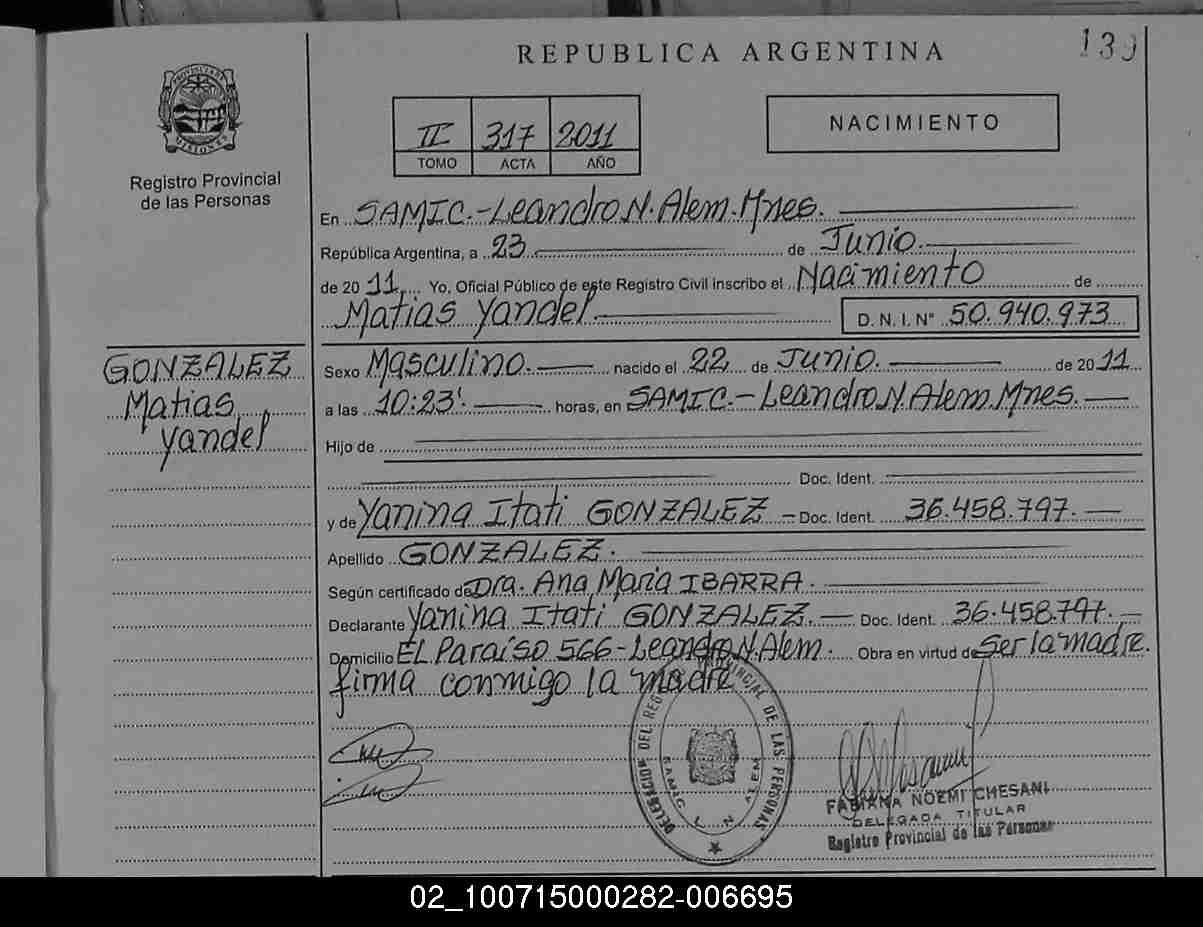 REPUBLICA ARGENTINA
139
PROVINCIA DE MISIONES
Registro Provincial
de las Personas
II 317 2011
TOMO ACTA AÑO
NACIMIENTO
En SAMIC.-Leandro N. Alem. Mnes.
República Argentina, a 23 de Junio.
de 2011 Yo, Oficial Público de este Registro Civil inscribo el Nacimiento de
Matias Yandel. D. N. I. N° 50.940.973
GONZALEZ
Matias
Yandel
Sexo Masculino. nacido el 22 de Junio. de 2011
a las 10:23'. horas, en SAMIC.-Leandro N. Alem. Mnes.
Hijo de
Doc. Ident.
y de Yanina Itati GONZALEZ - Doc. Ident. 36.458.797.
Apellido GONZALEZ.
Según certificado de Dra. Ana Maria IBARRA.
Declarante Yanina Itati GONZALEZ. Doc. Ident. 36.458.797.
Domicilio EL Paraíso 566-Leandro N. Alem. Obra en virtud de Ser la madre.
firma conmigo la madre
DELEGACION DEL REGISTRO PROVINCIAL DE LAS PERSONAS
SAMIC L N ALEM
FABIANA NOEMI CHESANI
DELEGADA TITULAR
Registro Provincial de las Personas
02_100715000282-006695